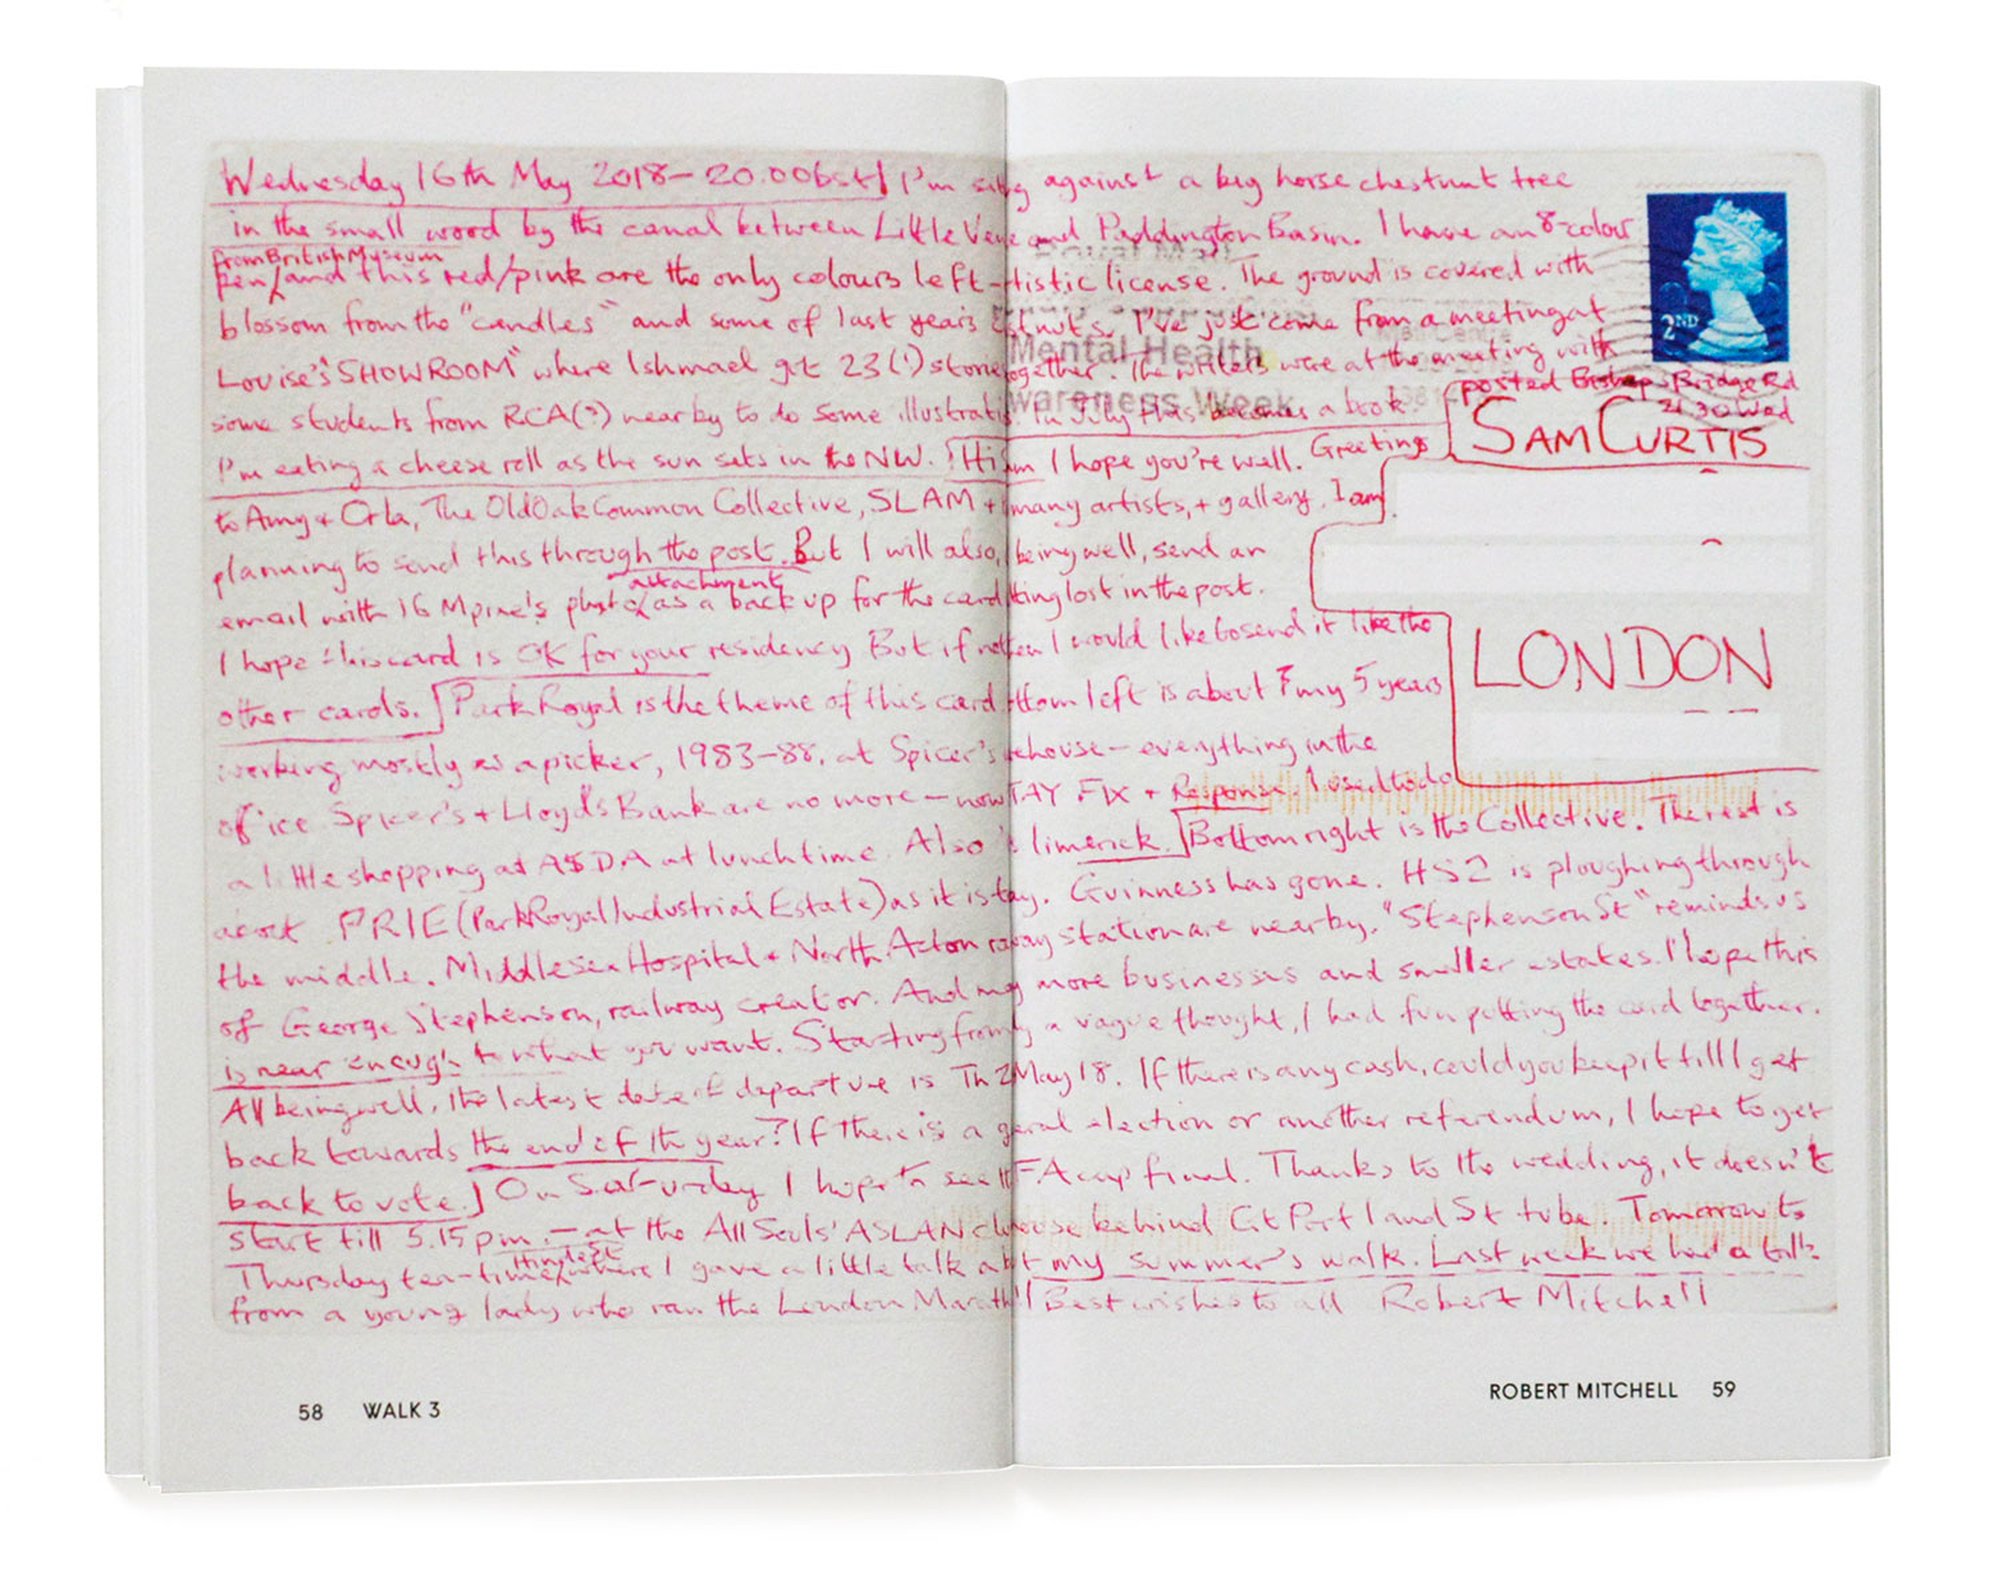 Wednesday 16th May 2018 – 20.00bst I'm against a big horse chestnut tree
in the small wood by the canal between Little and Paddington Basin. I have an 8-colour
from British Museum
pen/and this red/pink are the only colours left – tistic license. The ground is covered with
blossom from the "candles" and some of last years stnuts. I've just come from a meeting at
Louise's "SHOWROOM" where Ishmael got 23(!) stories together. The writers were at the meeting with
some students from RCA(?) nearby to do some illustrati. In July this becomes a book.
I'm eating a cheese roll as the sun sets in the NW. Hi I hope you're well. Greetings
to Amy + Orla, The Old Oak Common Collective, SLAM + many artists, + gallery. I am
planning to send this through the post. But I will also, being well, send an
attachment
email with 16 Mpixel's as a back up for the card tting lost in the post.
I hope this card is OK for your residency But if not I would like to send it like the
other cards. Park Royal is the theme of this card ttom left is about my 5 years
working mostly as a picker, 1983–88, at Spicer's ehouse – everything in the
office. Spicer's + Lloyd's Bank are no more – now TAY FIX + Response. I used to do
a little shopping at ASDA at lunchtime. Also limerick. Bottom right is the Collective. The rest is
PRIE (Park Royal Industrial Estate) as it is Guinness has gone. HS2 is ploughing through
the middle. Middlesex Hospital + North Acton station are nearby. "Stephenson St" reminds us
of George Stephenson, railway creator. And more businesses and smaller estates. I hope this
is near enough to what you want. Starting from a vague thought, I had fun putting the card together.
All being well, the latest date of departure is Th May 18. If there is any cash, could you keep it till I get
back towards the end of the year? If there is a election or another referendum, I hope to get
back to vote. On Saturday I hope to see FA cup final. Thanks to the wedding, it doesn't
start till 5.15pm. – at the All Souls' ASLAN behind Gt Portland St tube. Tomorrow
Thursday tea-time/where I gave a little talk my summer's walk. Last week we had a talk
from a young lady who ran the London Best wishes to all Robert Mitchell
Mental Health
Awareness Week
2ND
posted Bishops Bridge Rd
21.30 Wed
SAM CURTIS
LONDON
58 WALK 3
ROBERT MITCHELL 59